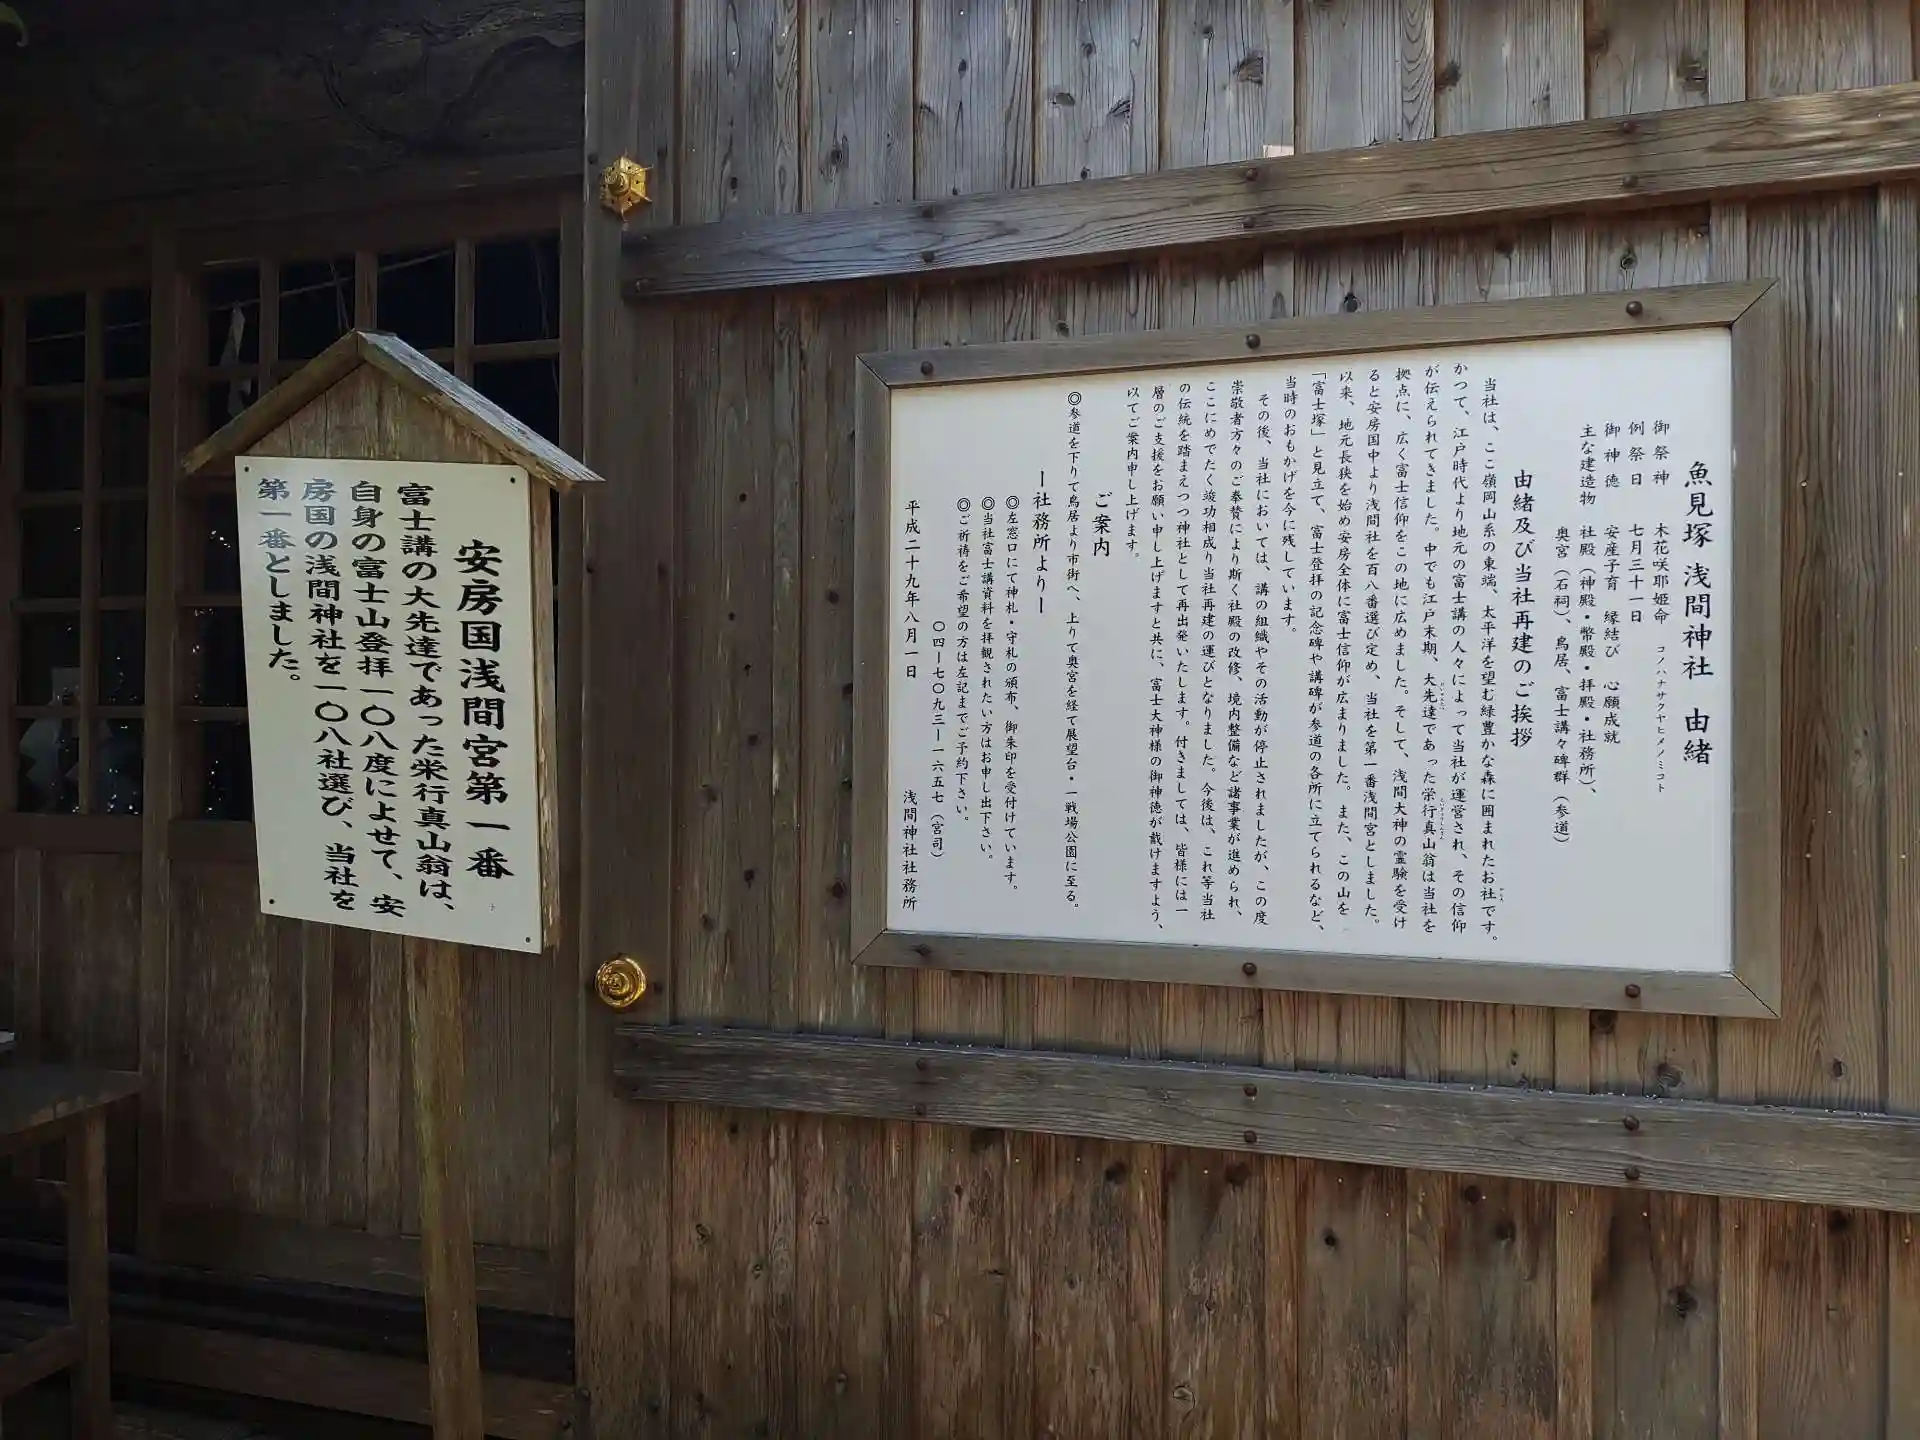 安房国浅間宮第一番
富士講の大先達であった栄行真山翁は、
自身の富士山登拝一〇八度によせて、安
房国の浅間神社を一〇八社選び、当社を
第一番としました。
魚見塚浅間神社 由緒
御祭神 木花咲耶姫命 コノハナサクヤヒメノミコト
例祭日 七月三十一日
御神徳 安産子育 縁結び 心願成就
主な建造物 社殿（神殿・幣殿・拝殿・社務所）、
奥宮（石祠）、鳥居、富士講々碑群（参道）
由緒及び当社再建のご挨拶
当社は、ここ嶺岡山系の東端、太平洋を望む緑豊かな森に囲まれたお社です。
かつて、江戸時代より地元の富士講の人々によって当社が運営され、その信仰
が伝えられてきました。中でも江戸末期、大先達であった栄行真山翁は当社を
拠点に、広く富士信仰をこの地に広めました。そして、浅間大神の霊験を受け
ると安房国中より浅間社を百八番選び定め、当社を第一番浅間宮としました。
以来、地元長狭を始め安房全体に富士信仰が広まりました。また、この山を
「富士塚」と見立て、富士登拝の記念碑や講碑が参道の各所に立てられるなど、
当時のおもかげを今に残しています。
その後、当社においては、講の組織やその活動が停止されましたが、この度
崇敬者方々のご奉賛により斯く社殿の改修、境内整備など諸事業が進められ、
ここにめでたく竣功相成り当社再建の運びとなりました。今後は、これ等当社
の伝統を踏まえつつ神社として再出発いたします。付きましては、皆様には一
層のご支援をお願い申し上げますと共に、富士大神様の御神徳が戴けますよう、
以てご案内申し上げます。
ご案内
◎参道を下りて鳥居より市街へ、上りて奥宮を経て展望台・一戦場公園に至る。
ー社務所よりー
◎左窓口にて神札・守札の頒布、御朱印を受付けています。
◎当社富士講資料を拝観されたい方はお申し出下さい。
◎ご祈祷をご希望の方は左記までご予約下さい。
〇四ー七〇九三ー一六五七（宮司）
平成二十九年八月一日 浅間神社社務所